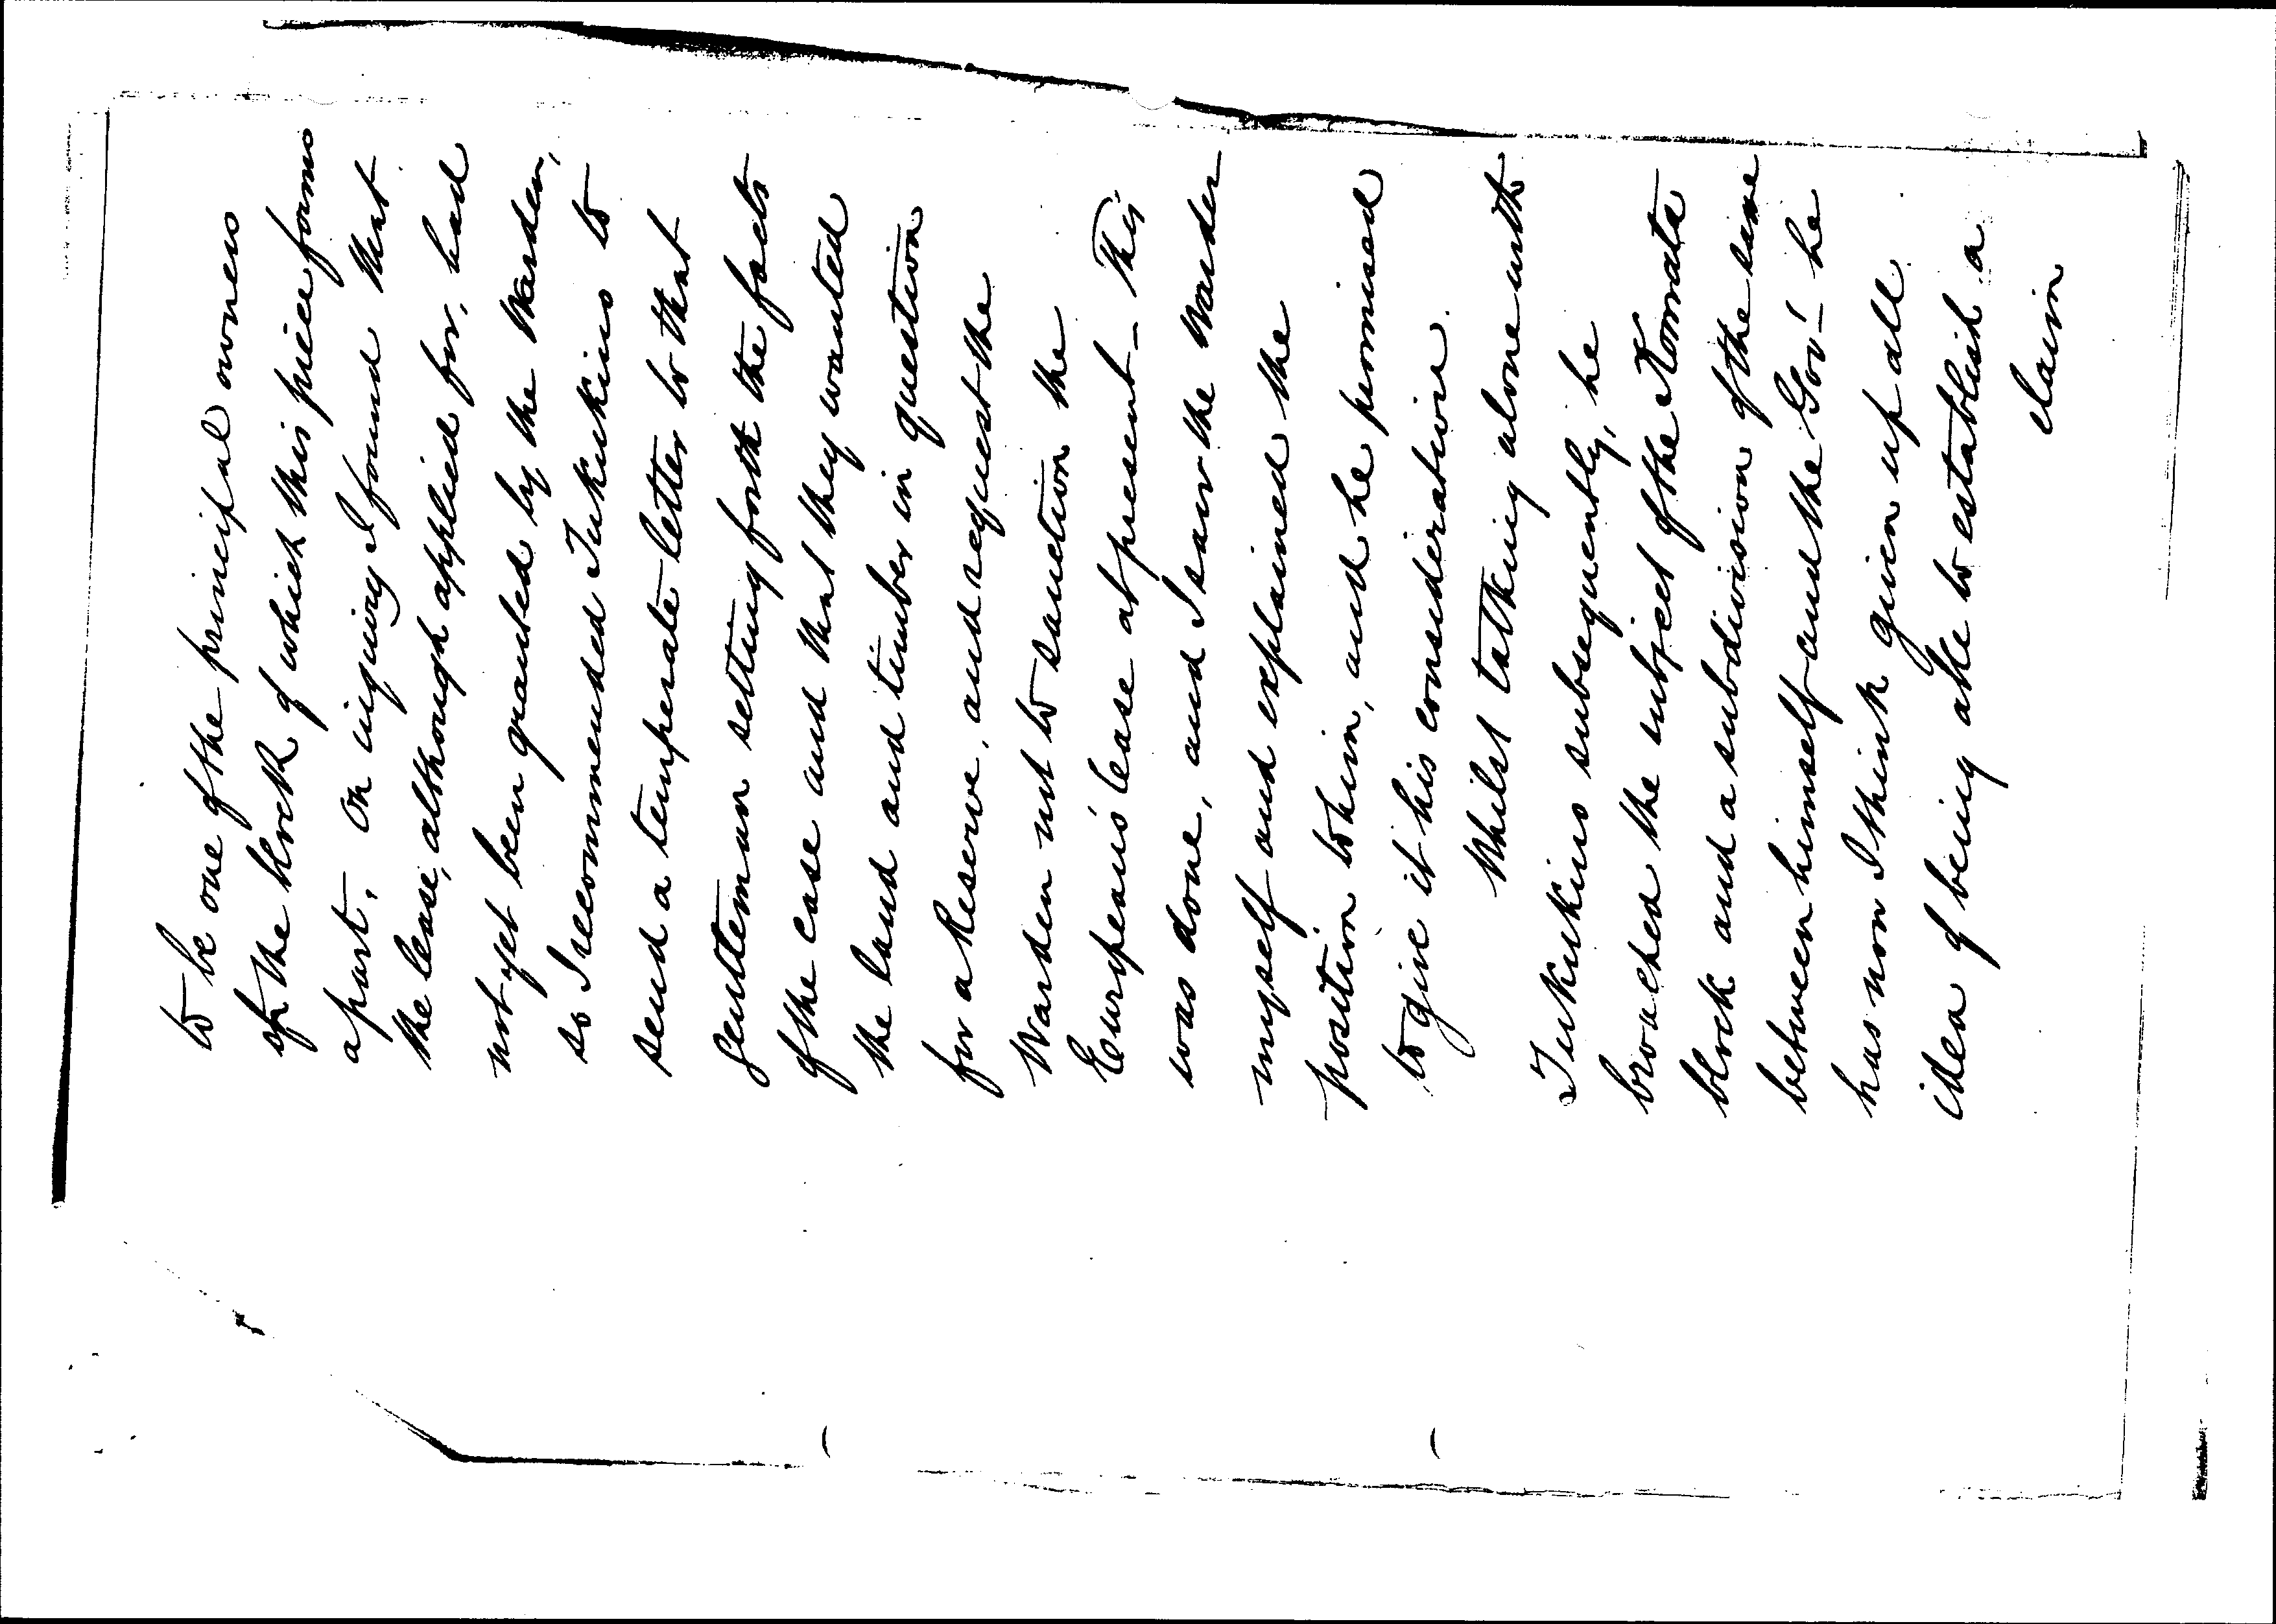 to be one of the principal owners
of the block of which this piece forms
a part. On inquiry I found that
the lease, although applied for, had
not yet been granted by the Warden,
so I recommended Tukukino to
send a temperate letter to that
gentleman setting forth the facts
of the case and that they wanted
the land and timber in question
for a Reserve, and request the
Warden not to sanction the
European's lease at present - This
was done, and I saw the Warden
myself and explained the
position to him, and he promised
to give it his consideration.
Whilst talking alone with
Tukukino subsequently, he
broached the subject of the Komata
block and a subdivision of the same
between himself and the Govt - he
has now I think given up all
idea of being able to establish a
claim